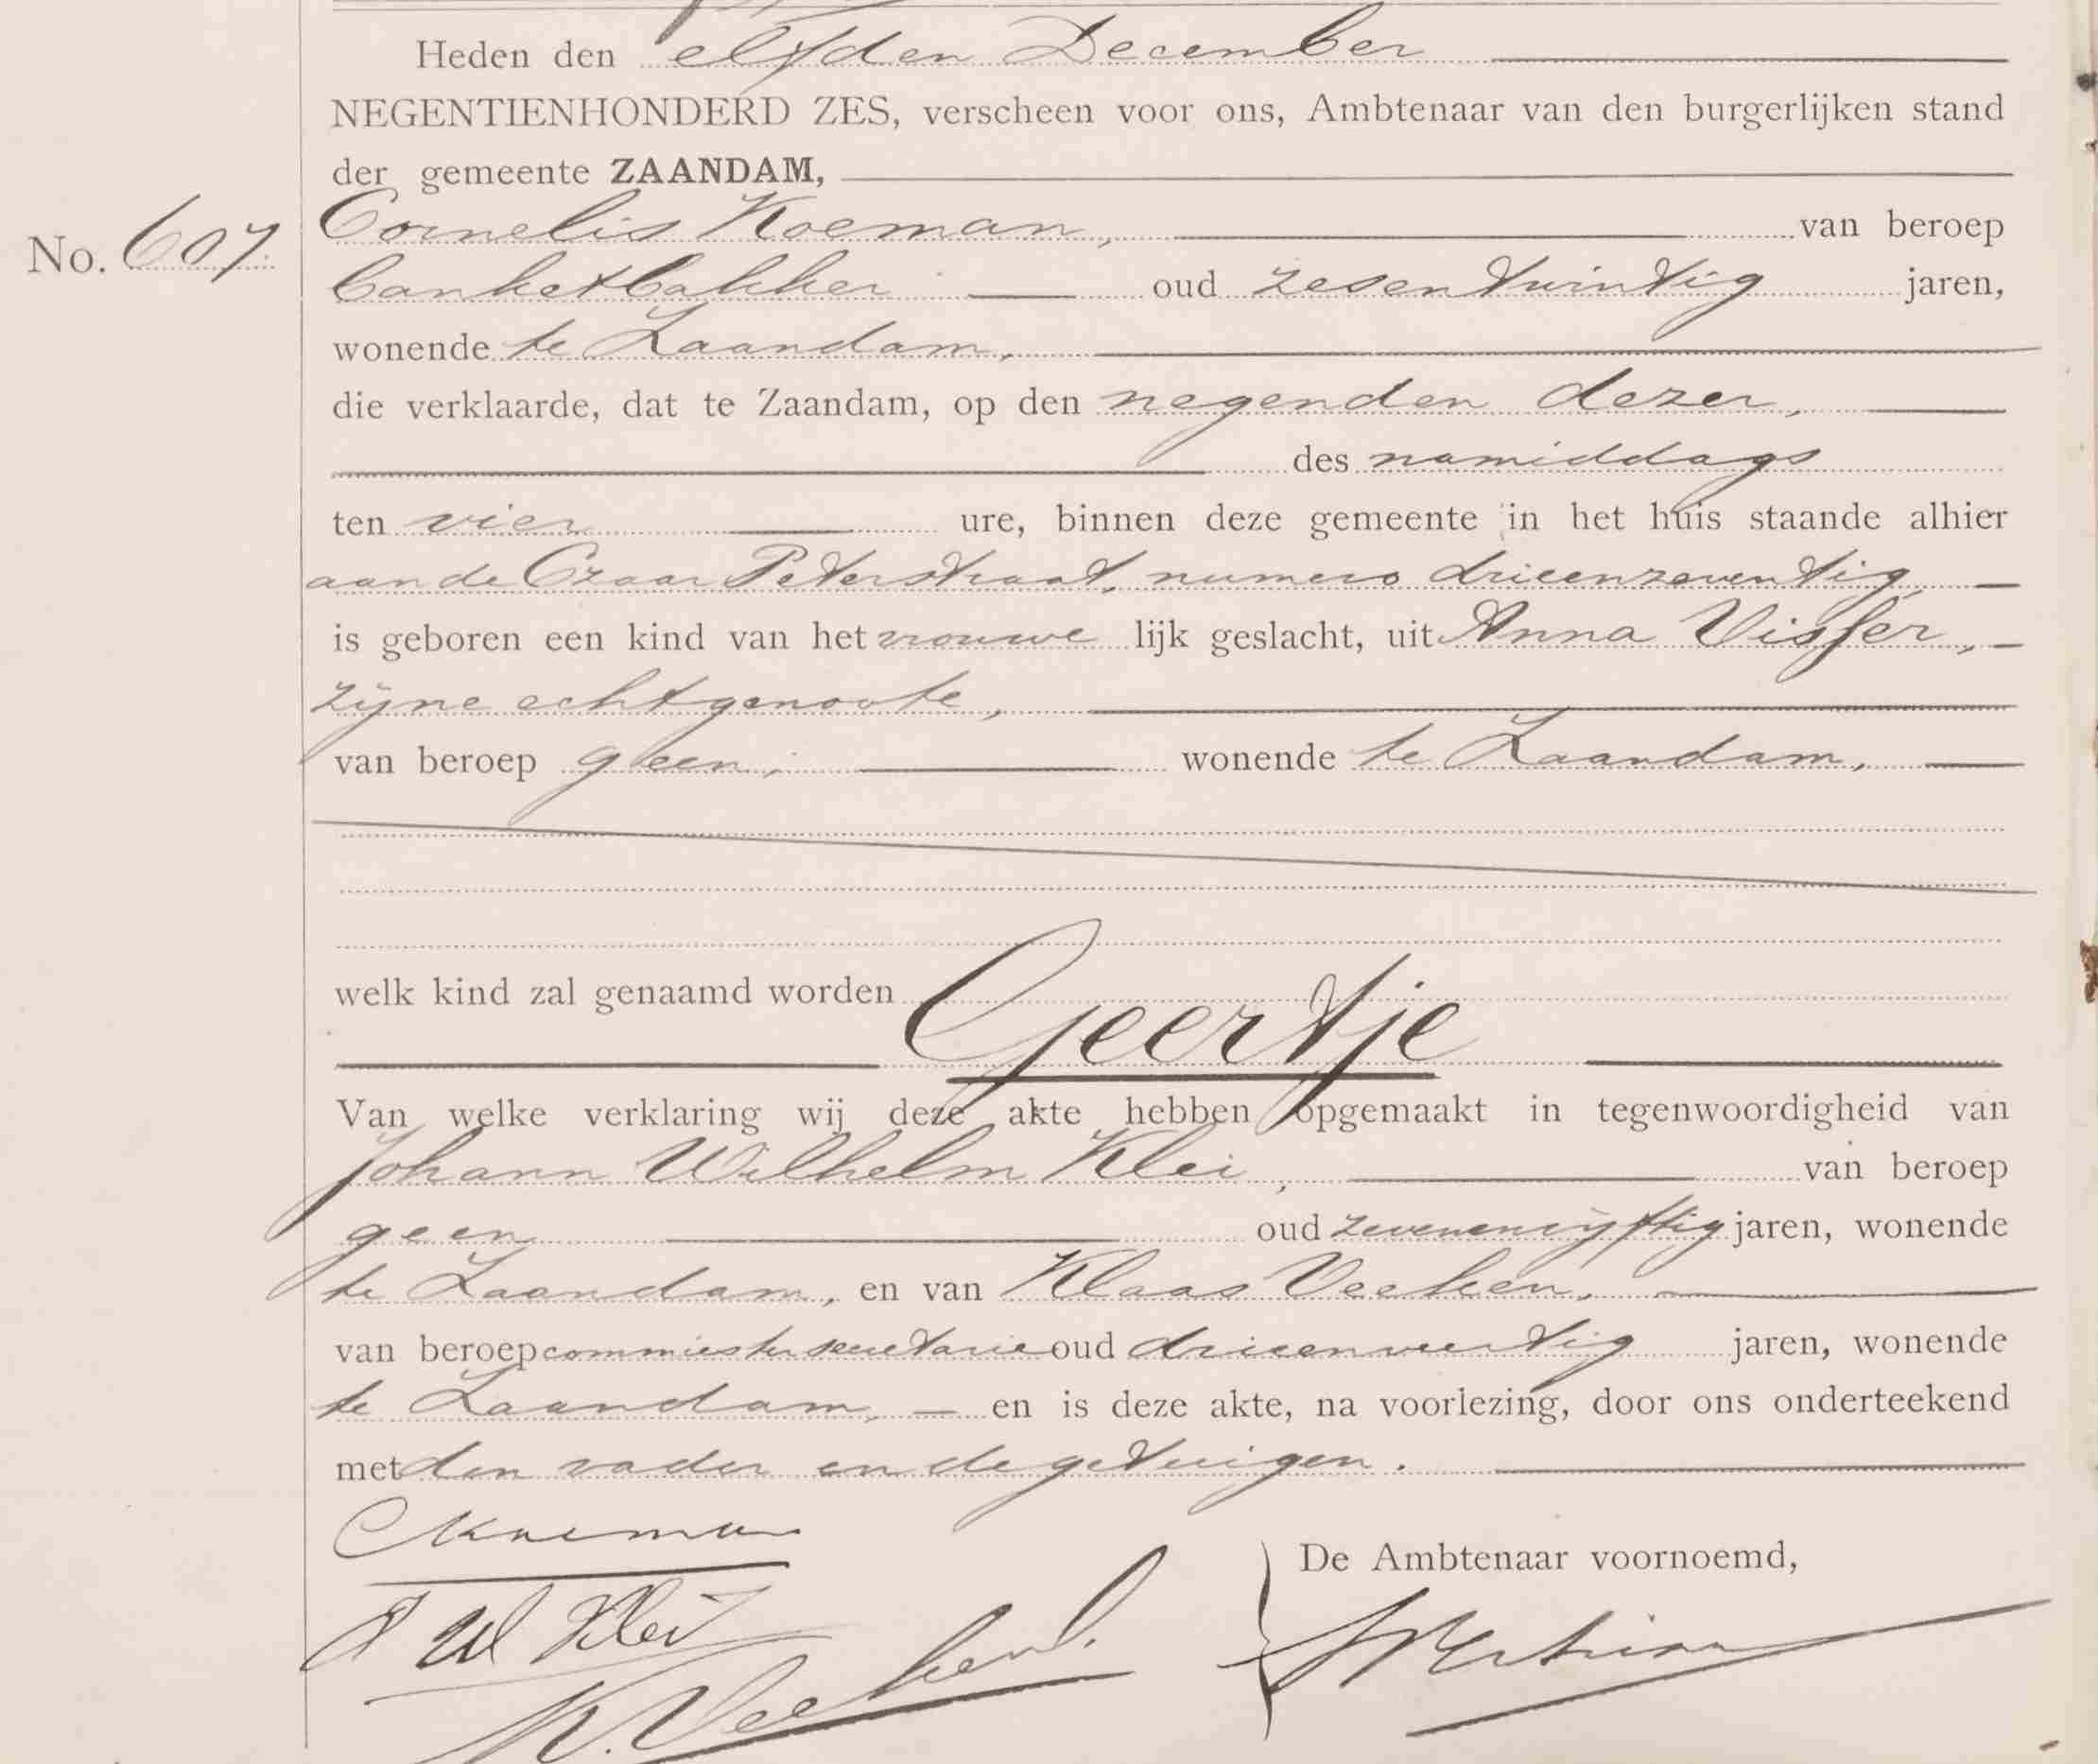 Heden den elfden December
NEGENTIENHONDERD ZES, verscheen voor ons, Ambtenaar van den burgerlijken stand
der gemeente ZAANDAM,
No. 607. Cornelis Koeman, van beroep
banketbakker oud zesentwintig jaren,
wonende te Zaandam,
die verklaarde, dat te Zaandam, op den negenden dezer,
des namiddags
ten vier ure, binnen deze gemeente in het huis staande alhier
aan de Czaar Peterstraat, numero drieenzeventig
is geboren een kind van het vrouwe lijk geslacht, uit Anna Visser,
zijne echtgenoote,
van beroep geen, wonende te Zaandam,
welk kind zal genaamd worden
Geertje
Van welke verklaring wij deze akte hebben opgemaakt in tegenwoordigheid van
Johann Wilhelm Klei, van beroep
geen oud zevenenvijftig jaren, wonende
te Zaandam, en van Klaas Veeken,
van beroep commies ter secretarie oud drieenveertig jaren, wonende
te Zaandam, en is deze akte, na voorlezing, door ons onderteekend
met den vader en de getuigen.
C Koeman
De Ambtenaar voornoemd,
J W Klei
K. Veeken